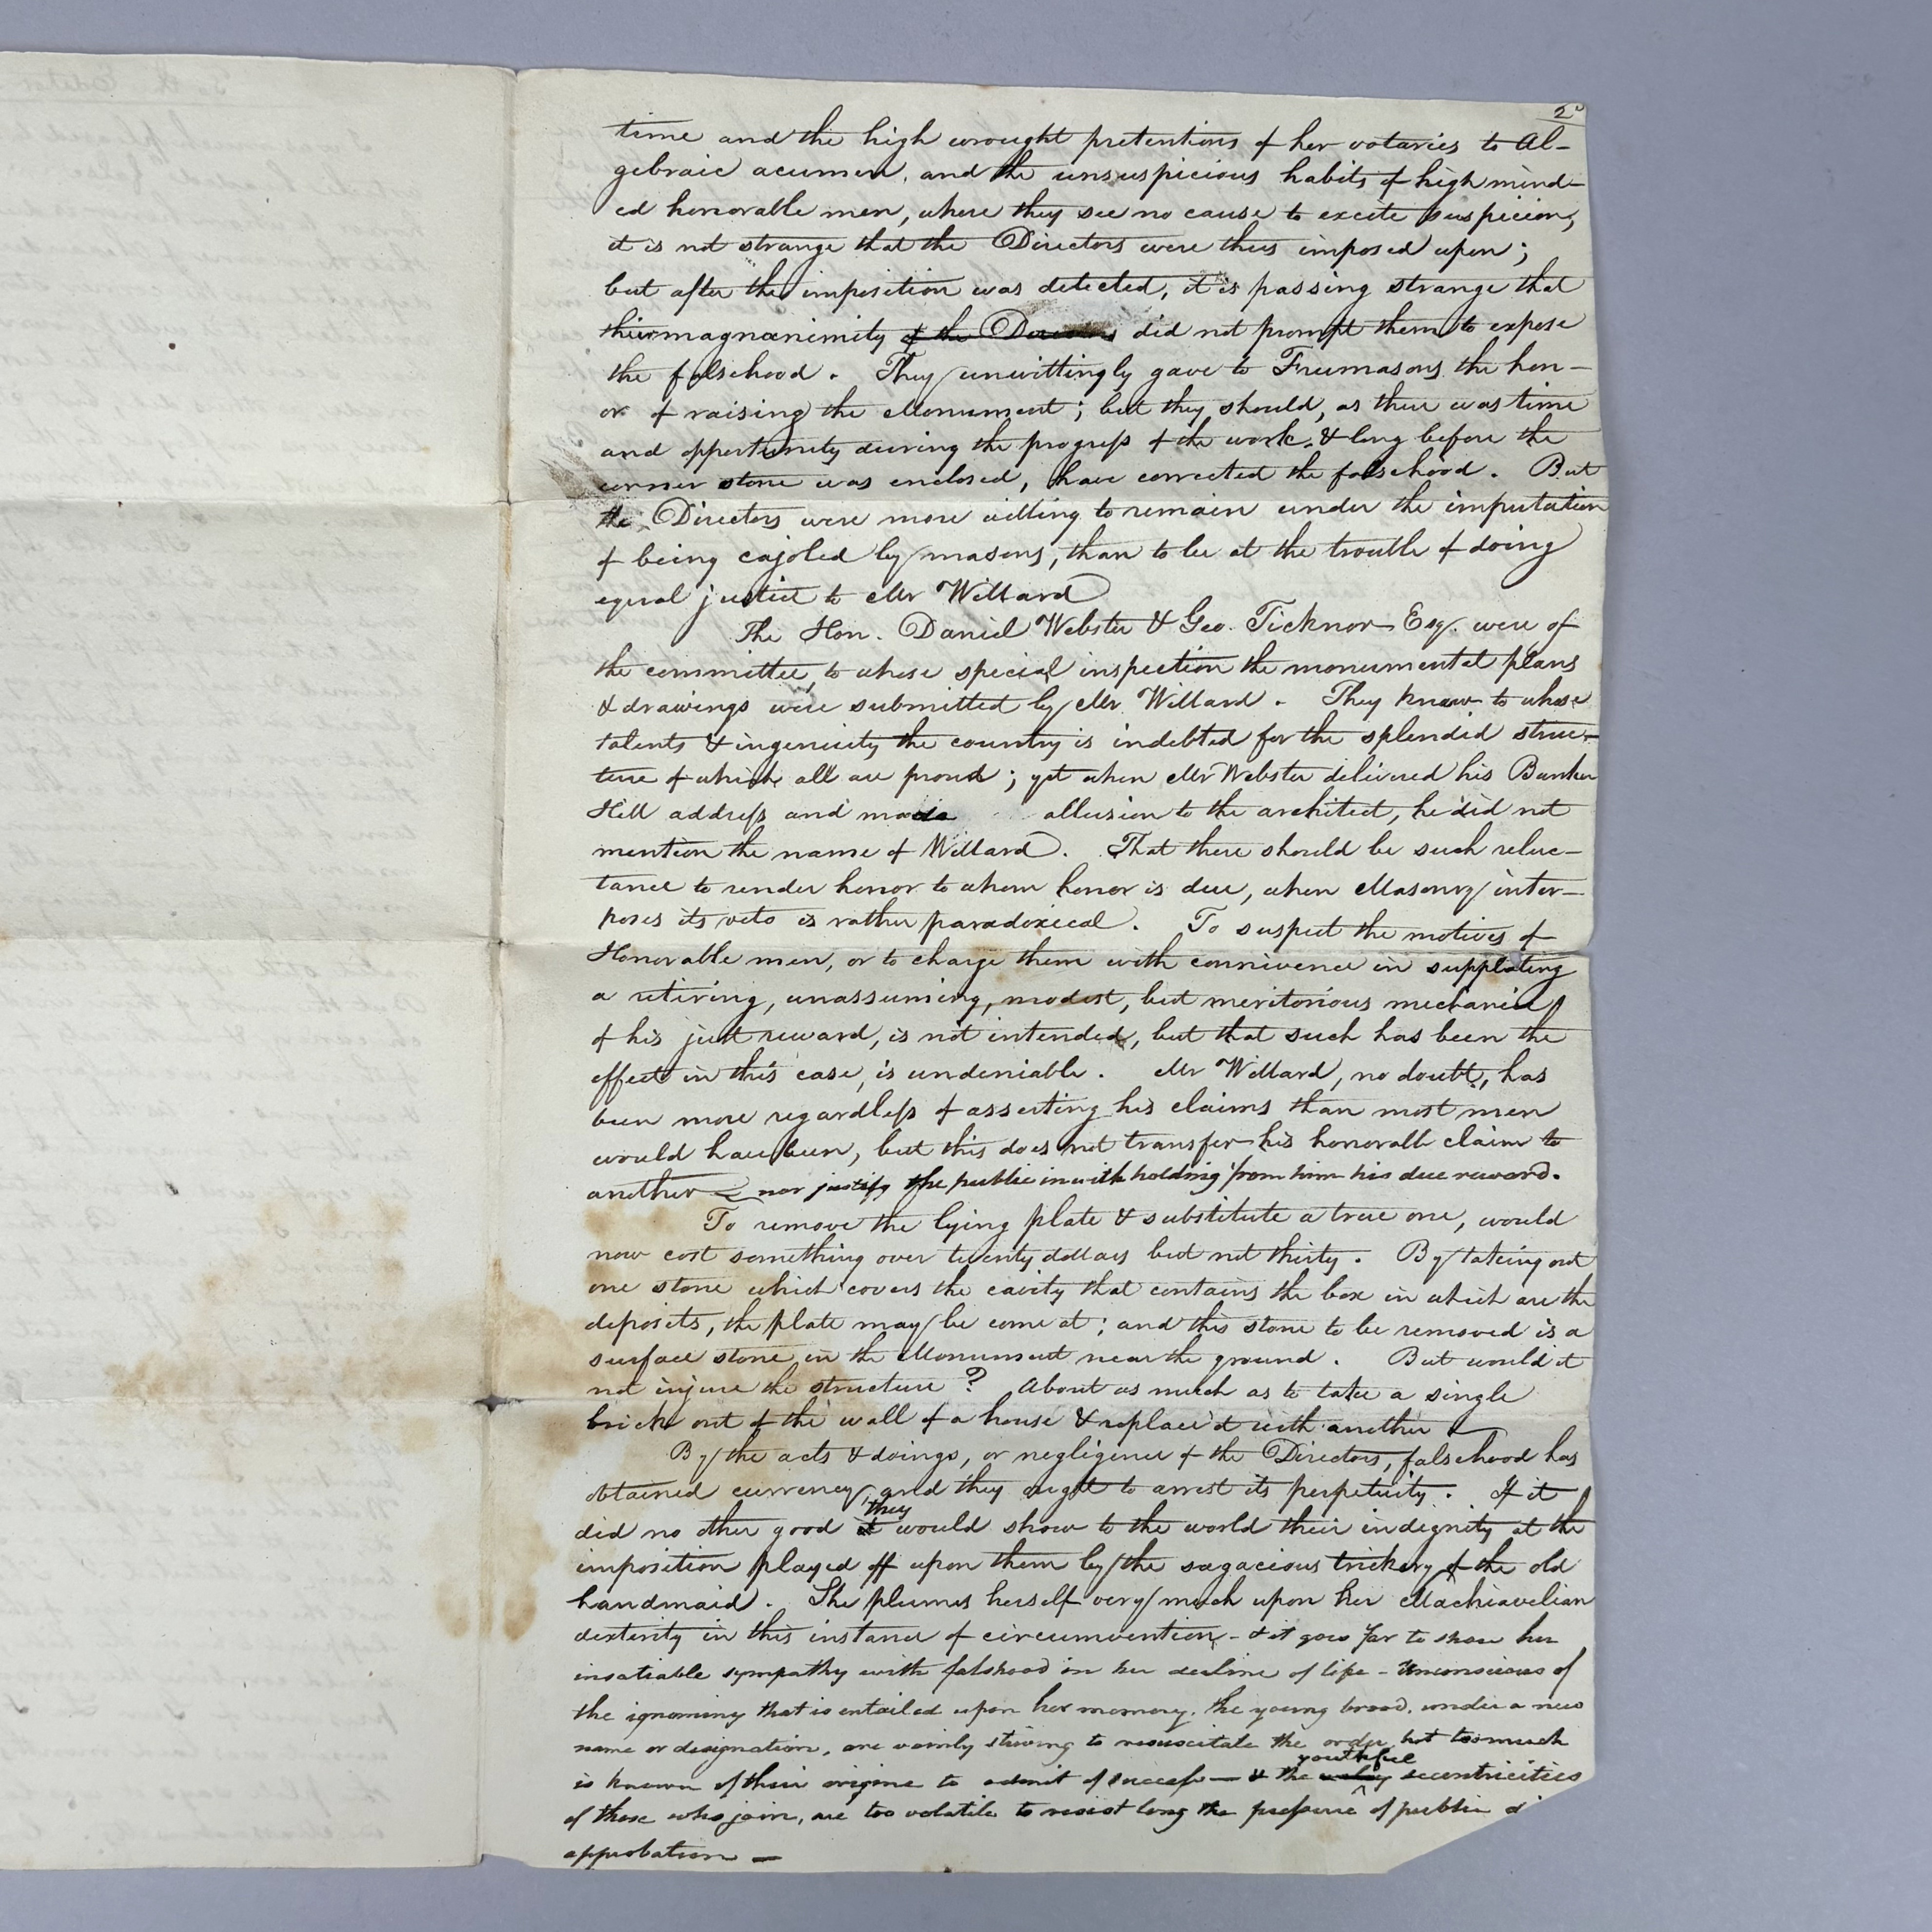 2d
time and the high wrought pretentions of her votaries to Al-
gebraic acumen, and the unsuspicious habits of high mind-
ed honorable men, where they see no cause to excite suspicion,
it is not strange that the Directors were thus imposed upon;
but after the imposition was detected, it is passing strange that
their magnanimity of the Directors did not prompt them to expose
the falsehood. They unwittingly gave to Freemasons the hon-
or of raising the Monument; but they should, as there was time
and opportunity during the progress of the work & long before the
corner stone was enclosed, have corrected the falsehood. But
the Directors were more willing to remain under the imputation
of being cajoled by masons, than to be at the trouble of doing
equal justice to Mr Willard
The Hon. Daniel Webster & Geo. Ticknor Esq. were of
the committee, to whose special inspection the monumental plans
& drawings were submitted by Mr. Willard. They know to whose
talents & ingenuity the country is indebted for the splendid struc-
ture of which all are proud; yet when Mr Webster delivered his Bunker
Hill address and made allusion to the architect, he did not
mention the name of Willard. That there should be such reluc-
tance to render honor to whom honor is due, when Masonry inter-
poses its veto is rather paradoxical. To suspect the motives of
Honorable men, or to charge them with connivence in supplating
a retiring, unassuming, modest, but meritorious mechanic
of his just reward, is not intended, but that such has been the
effect in this case, is undeniable. Mr Willard, no doubt, has
been more regardless of asserting his claims than most men
would have been, but this does not transfer his honorable claim to
another – nor justify the public in withholding from him his due reward.
To remove the lying plate & substitute a true one, would
now cost something over twenty dollars but not thirty. By taking out
one stone which covers the cavity that contains the box in which are the
deposits, the plate may be come at; and this stone to be removed is a
surface stone in the Monument near the ground. But would it
not injure the structure? About as much as to take a single
brick out of the wall of a house & replace it with another
By the acts & doings, or negligence of the Directors, falsehood has
obtained currency, and they ought to arrest its perpetuity. If it
they
did no other good it would show to the world their indignity at the
imposition played off upon them by the sagacious trickery of the old
handmaid. She plumes herself very much upon her Machiavelian
dexterity in this instance of circumvention – & it goes far to show her
insatiable sympathy with falshood in her decline of life – Unconscious of
the ignominy that is entailed upon her memory, the young brood, under a new
name or designation, are vainly striving to resuscitate the order, but too much
youthful
is known of their origine to admit of success – & the eccentricities
of those who join, are too volatile to resist long the pressure of public di
approbation –